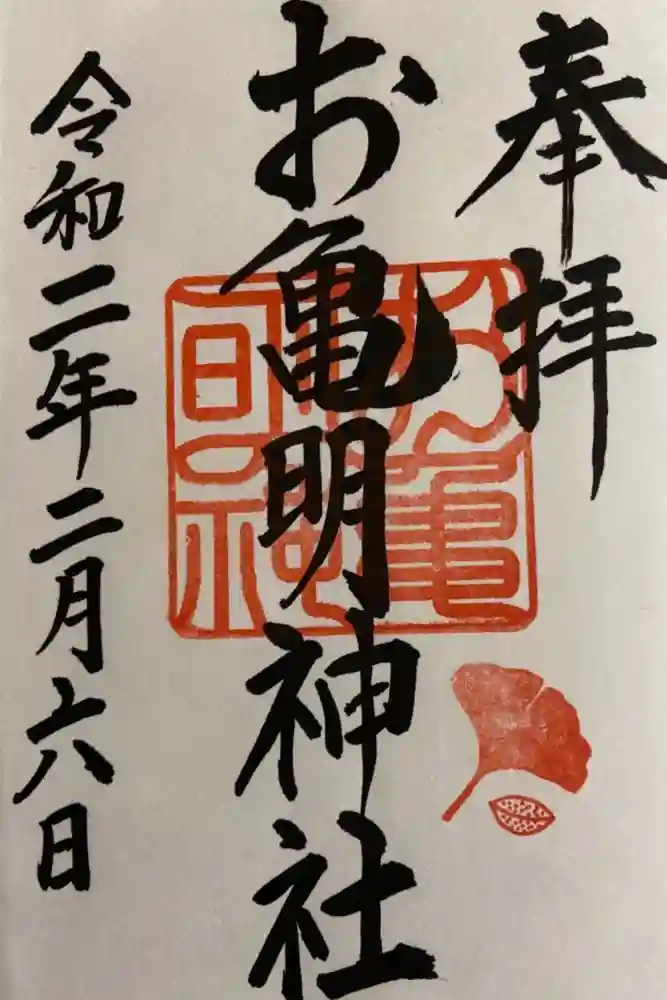 奉拝
お亀明神社
令和二年二月六日